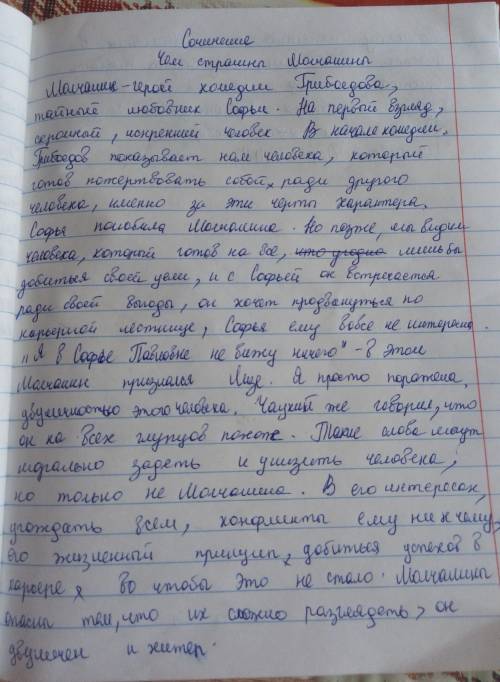 Сочинение
Чем страшны Молчалины
Молчалин-герой комедии Грибоедова,
тайный любовник Софьи. На первый взгляд,
скромный, искренний человек В начале комедии,
Грибоедов показывает нам человека, который
готов пожертвовать собой, ради другого
человека, именно за эти черты характера,
Софья полюбила Молчалина. Но позже, мы видим
человека, который готов на всё, что угодно лишь бы
добиться своей цели, и с Софьей он встречается
ради своей выгоды, он хочет продвинуться по
карьерной лестнице, Софья ему вовсе не интересна.
"Я в Софье Павловне не вижу ничего" - в этом
Молчалин признался Лизе. Я просто поражена,
двуличностью этого человека. Чацкий же говорил, что
он на всех глупцов похож. Такие слова могут
морально задеть и унизить человека,
но только не Молчалина. В его интересах,
угождать всем, конфликты ему ни к чему,
его жизненный принцип, добиться успехов в
карьере, во чтобы это не стало. Молчалины
опасны тем, что их сложно разглядеть, он
двуличен и хитер.